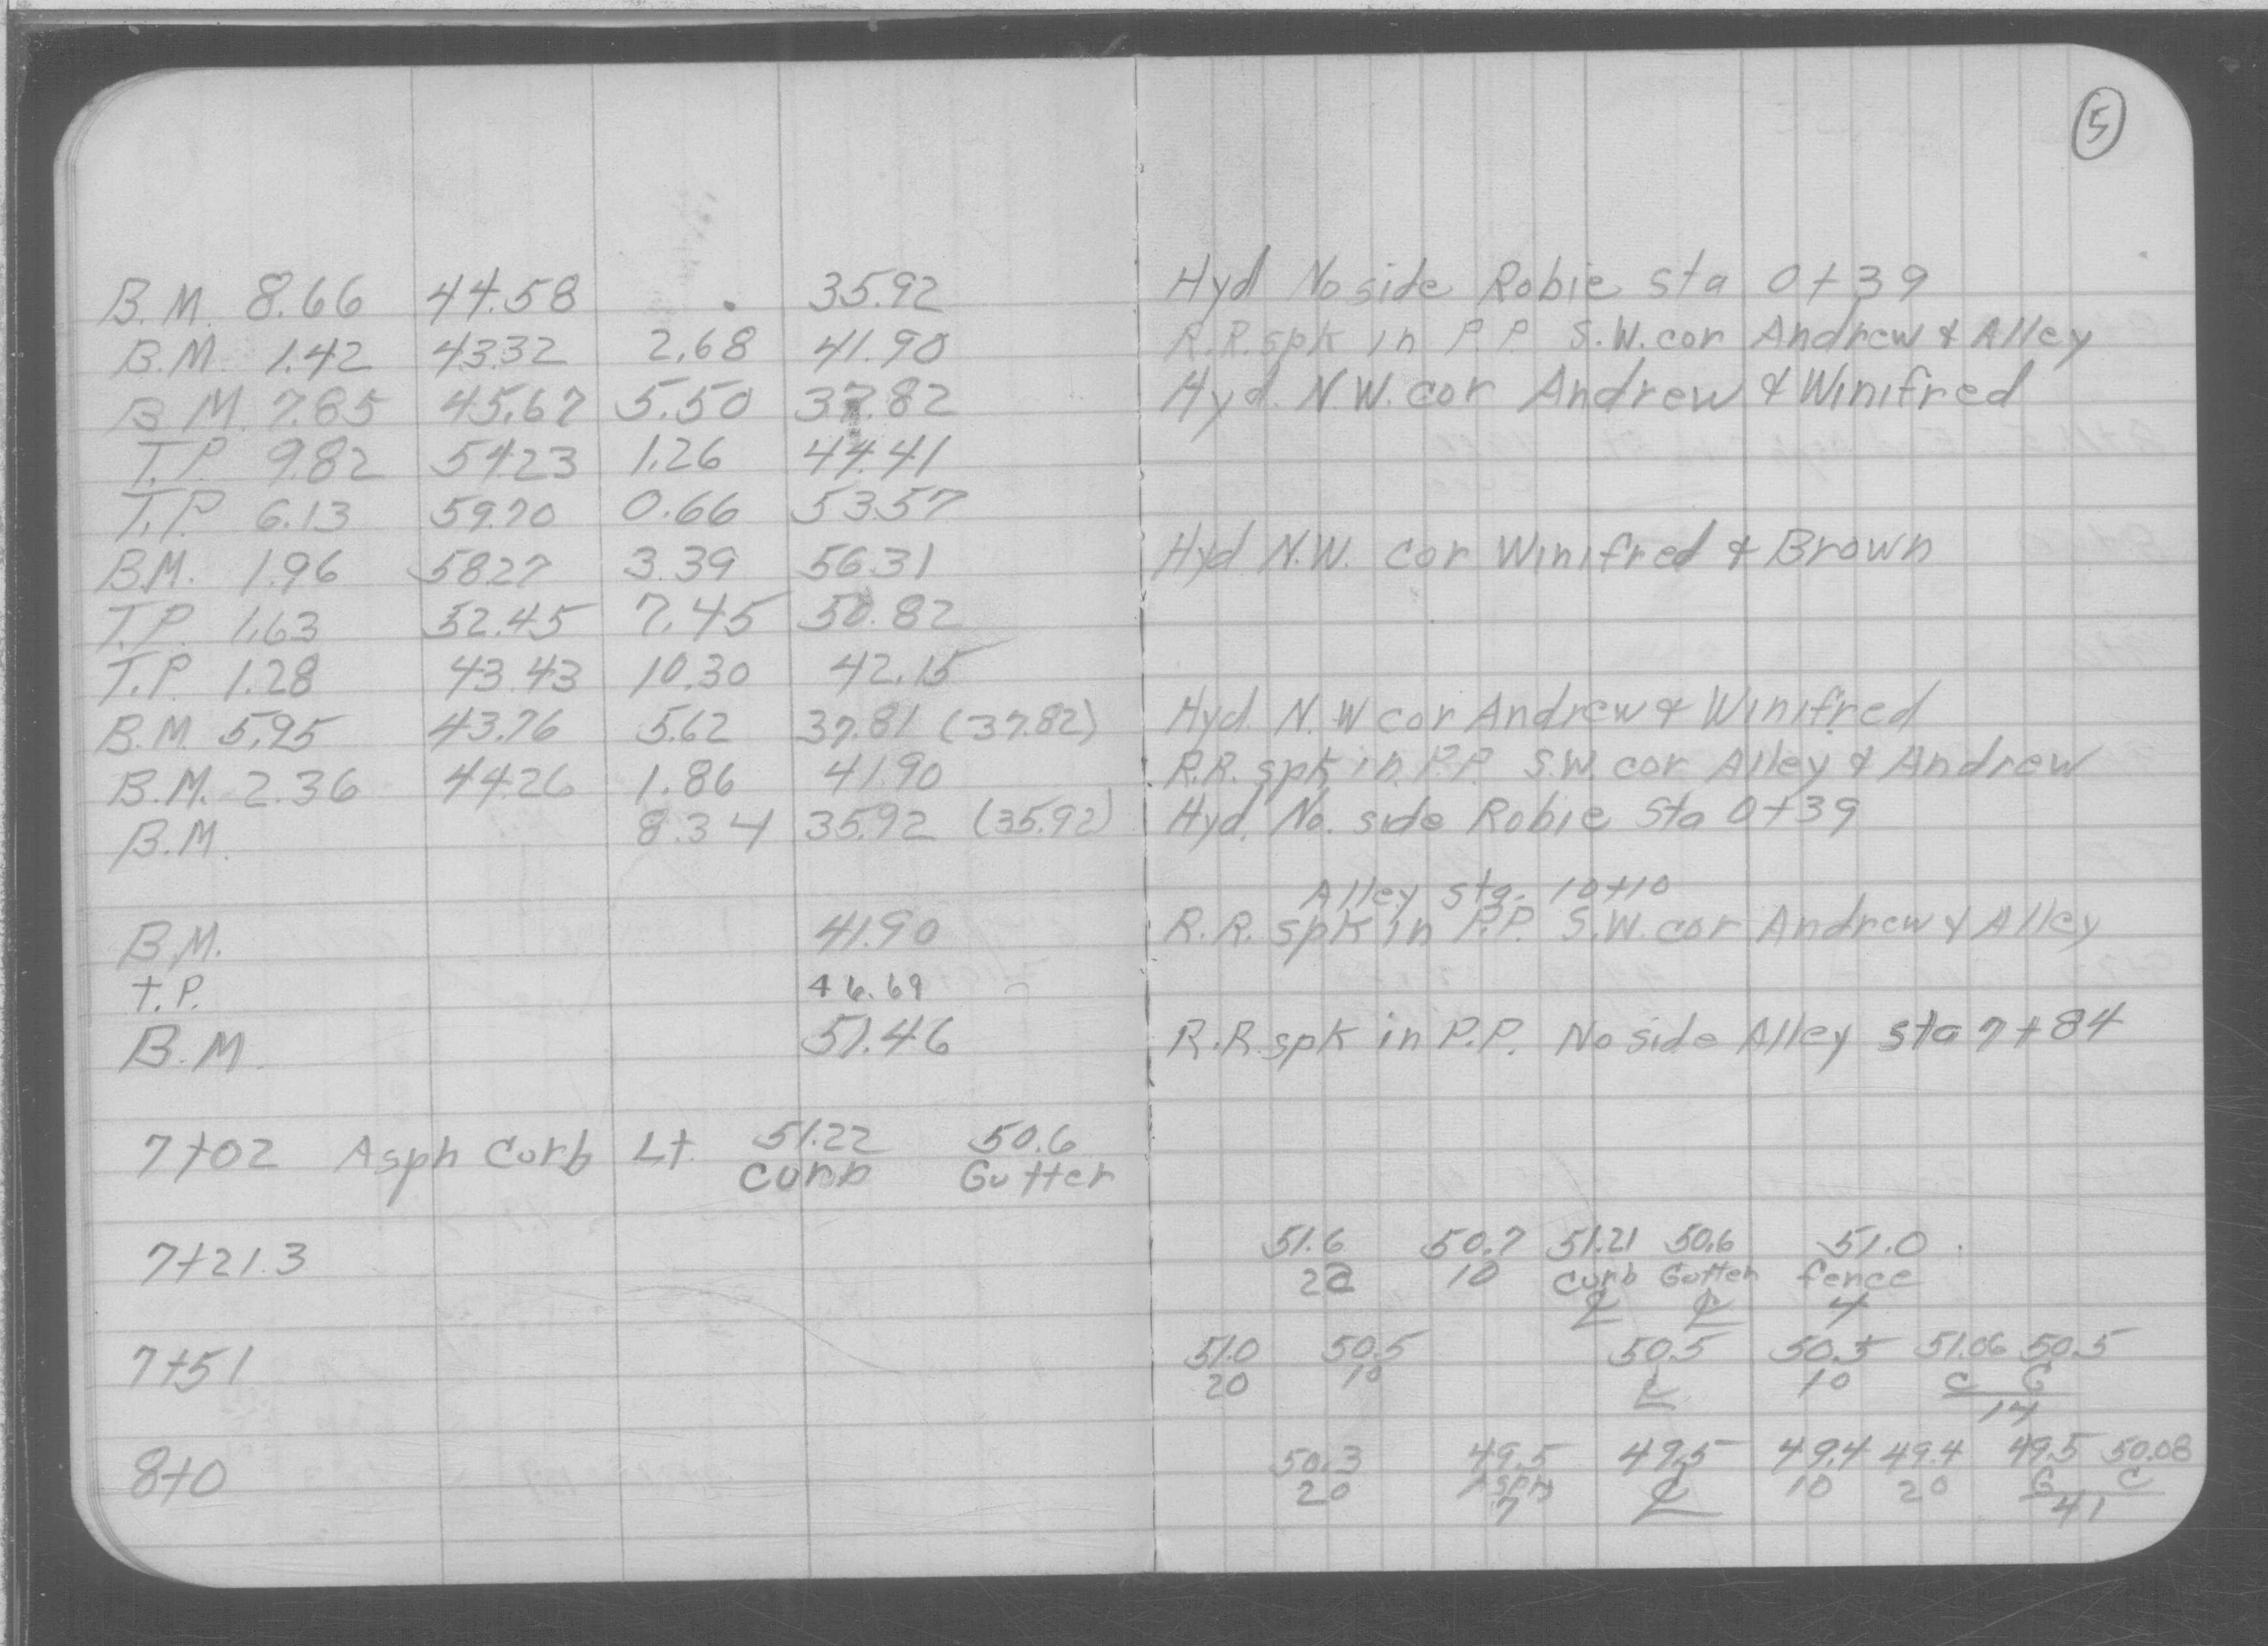 5
B.M. 8.66 44.58 35.92 Hyd No side Robie Sta 0+39
B.M. 1.42 43.32 2.68 41.90 R.R. spk in P.P. S.W. cor Andrew & Alley
B.M. 7.85 45.67 5.50 37.82 Hyd. N.W. cor Andrew & Winifred
T.P. 9.82 54.23 1.26 44.41
T.P. 6.13 59.70 0.66 53.57
B.M. 1.96 58.27 3.39 56.31 Hyd N.W. cor Winifred & Brown
T.P. 1.63 52.45 7.45 50.82
T.P. 1.28 43.43 10.30 42.15
B.M. 5.95 43.76 5.62 37.81 (37.82) Hyd. N.W cor Andrew & Winifred
B.M. 2.36 44.26 1.86 41.90 R.R. spk in P.P. S.W. cor Alley & Andrew
B.M. 8.34 35.92 (35.92) Hyd. No. side Robie Sta 0+39
Alley sta. 10+10
B.M. 41.90 R.R. spk in P.P. S.W. cor Andrew & Alley
T.P. 46.69
B.M. 51.46 R.R. spk in P.P. No side Alley sta 7+84
7+02 Asph Curb Lt. 51.22 50.6
Curb Gutter
7+21.3 51.6 50.7 51.21 50.6 51.0
20 10 Curb Gutter fence
℄ ℄ 4
7+51 51.0 50.5 50.5 50.5 51.06 50.5
20 10 ℄ 10 C G
14
8+0 50.3 49.5 49.5 49.4 49.4 49.5 50.08
20 Asph ℄ 10 20 G C
7 41